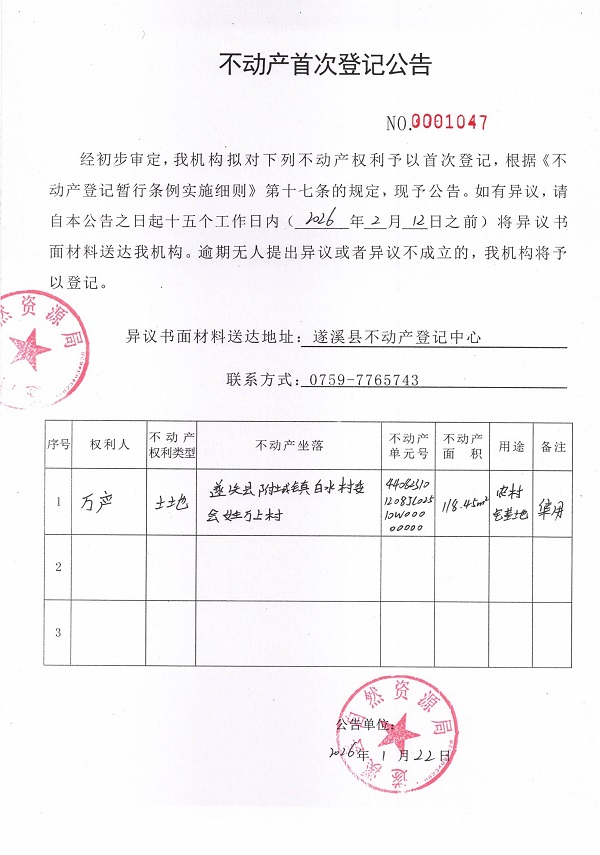 不动产首次登记公告
NO.0001047
经初步审定，我机构拟对下列不动产权利予以首次登记，根据《不
动产登记暂行条例实施细则》第十七条的规定，现予公告。如有异议，请
自本公告之日起十五个工作日内（2026年2月12日之前）将异议书
面材料送达我机构。逾期无人提出异议或者异议不成立的，我机构将予
以登记。
异议书面材料送达地址：遂溪县不动产登记中心
联系方式：0759-7765743
序号 权利人 不动产权利类型 不动产坐落 不动产单元号 不动产面积 用途 备注
1 万产 土地 遂溪县附城镇白水村委 118.45m² 农村宅基地
会姓万上村
2
3
然资源局
遂溪县自然资源局
公告单位：
2026年1月22日